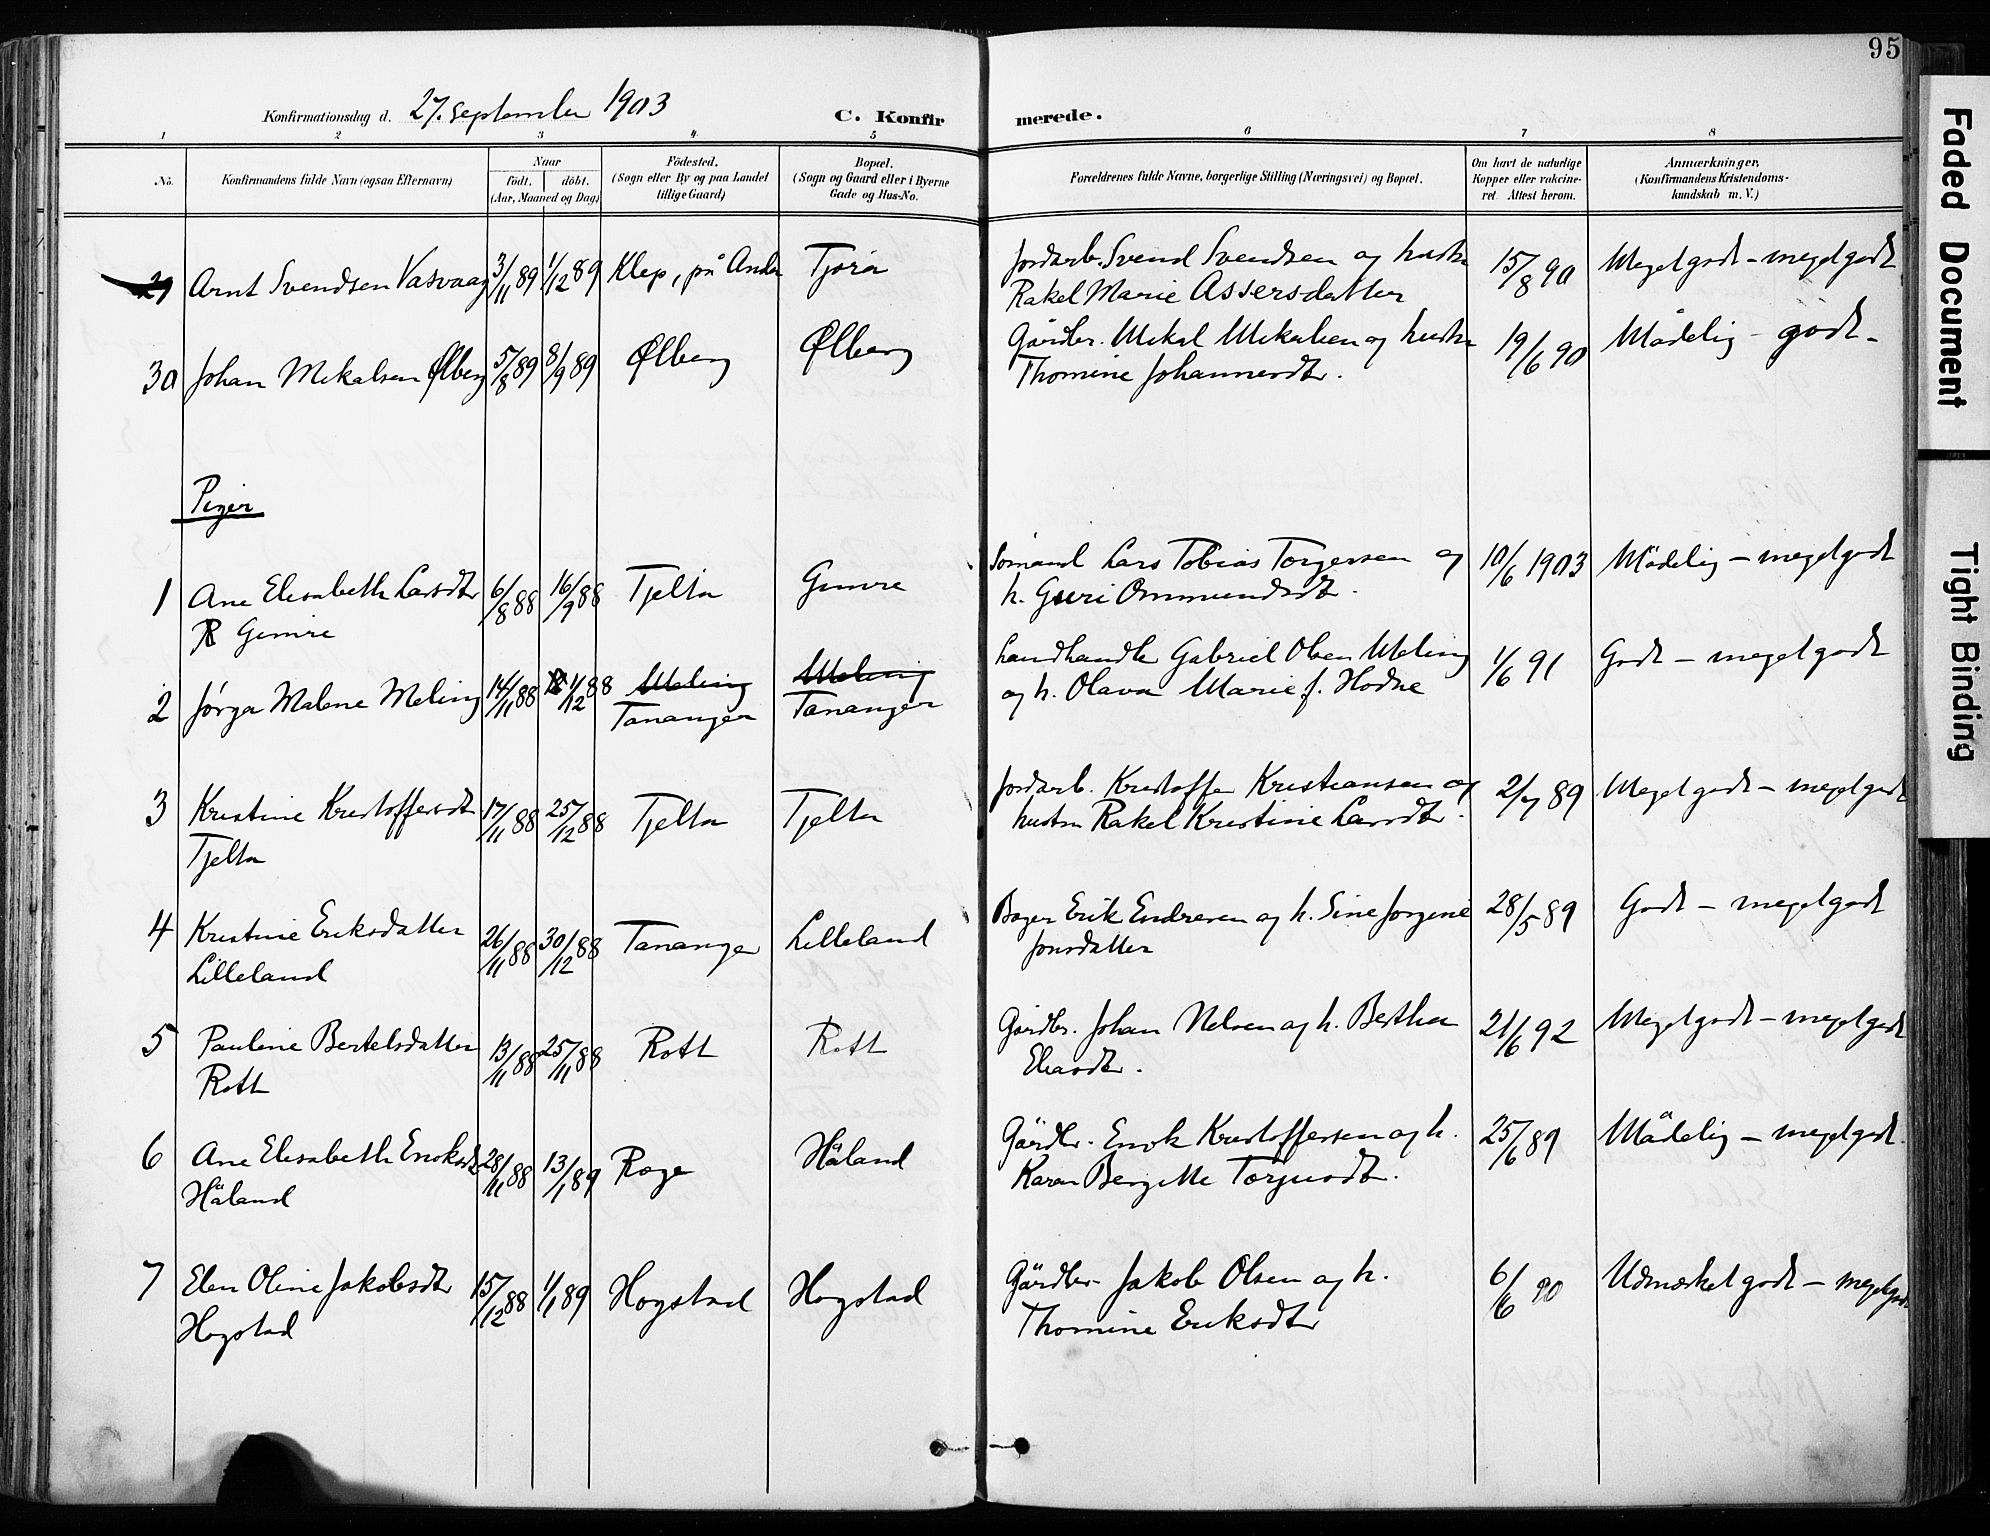 95
Konfirmationsdag d. 27. September 1903
C. Konfirmerede.
1 2 3 4 5 6 7 8
No.
Konfirmandens fulde Navn (ogsaa Efternavn)
Naar
födt. döbt.
(Aar, Maaned og Dag)
Födested.
(Sogn eller By og paa Landet
tillige Gaard)
Bopæl.
(Sogn og Gaard eller i Byerne
Gade og Hus-No.
Forældrenes fulde Navne, borgerlige Stilling (Næringsvei) og Bopæl.
Om havt de naturlige
Kopper eller vakcine-
ret. Attest herom.
Anmærkninger.
(Konfirmandens Kristendoms-
kundskab m. V.)
29 Arnt Svendsen Vasvaag 3/11 89 1/12 89 Klep, på Anda Tjora Jordarb. Svend Svendsen og hustru 15/8 90 Meget godt - meget godt
Rakel Marie Assersdatter
30 Johan Mikalsen Ølberg 5/8 89 8/9 89 Ølberg Ølberg Gårdbr. Mikal Mikalsen og hustru 19/6 90 Mådelig - godt -
Thomine Johannesdt.
Piger
1 Ane Elisabeth Larsdtr 6/8 88 16/9 88 Tjelta Gimre Sömand Lars Tobias Torgersen og 10/6 1903 Mådelig - meget godt
Gimre h. Guri Ommundsdt.
2 Jørga Malene Meling 14/11 88 1/12 88 Meling Meling Landhandler Gabriel Olsen Meling 1/6 91 Godt - meget godt
Tananger Tananger og h. Olava Marie f. Hodne
3 Kristine Kristoffersdt 17/11 88 25/12 88 Tjelta Tjelta Jordarb. Kristoffer Kristiansen og 2/7 89 Meget godt - meget godt
Tjelta hustru Rakel Kristine Larsdtr.
4 Kristine Eriksdatter 26/11 88 30/12 88 Tananger Lilleland Bager Erik Endresen og h. Sine Jorgine 28/5 89 Godt - meget godt
Lilleland Jonsdatter
5 Pauline Bertelsdatter 13/11 88 25/11 88 Rott Rott Gårdbr. Johan Nelsen og h. Bertha 21/6 92 Meget godt - meget godt
Rott Eliasdtr.
6 Ane Elisabeth Enoksdt 28/11 88 13/1 89 Rage Håland Gårdbr. Enok Kristoffersen og h. 25/6 89 Mådelig - meget godt.
Håland Karen Bergitte Torjusdt.
7 Elen Oline Jakobsdt 15/12 88 1/1 89 Hogstad Hogstad Gårdbr. Jakob Olsen og h. 6/6 90 Udmærket godt - meget godt
Hogstad Thomine Eriksdtr
Faded Document
Tight Binding